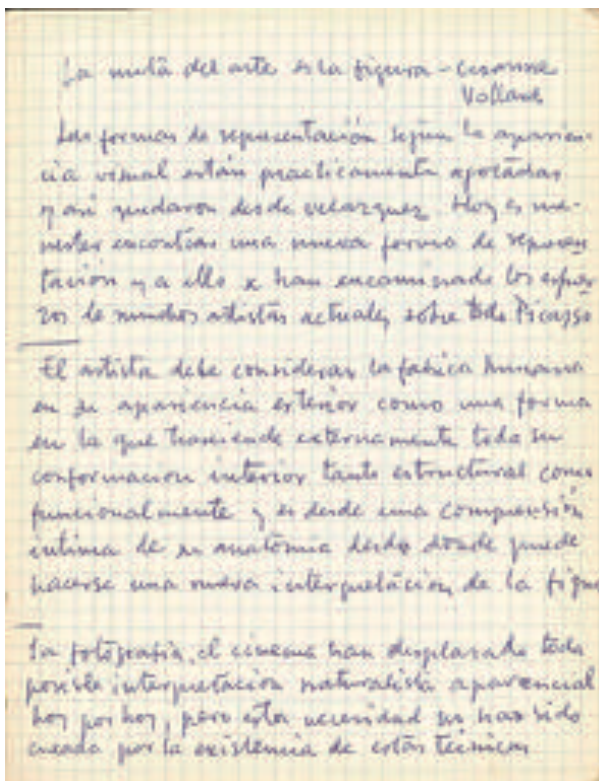 La meta del arte es la figura - Cezanne
Vollard
Las formas de representación según la aparien-
cia visual están practicamente agotadas
y asi quedaron desde velazquez. Hoy es me-
nester encontrar una nueva forma de represen
tación y a ello se han encaminado los esfuer
zos de muchos artistas actuales, sobre todo Picasso
El artista debe considerar la fabrica humana
en su apariencia exterior como una forma
en la que trasciende externamente toda su
conformacion interior tanto estructural como
funcionalmente y es desde una comprensión
intima de su anatomia desde donde puede
hacerse una nueva interpretación de la figu
La fotografia, el cinema han desplazado toda
posible interpretación naturalista aparencial
hoy por hoy, pero esta necesidad ha sido
creada por la existencia de estas tecnicas